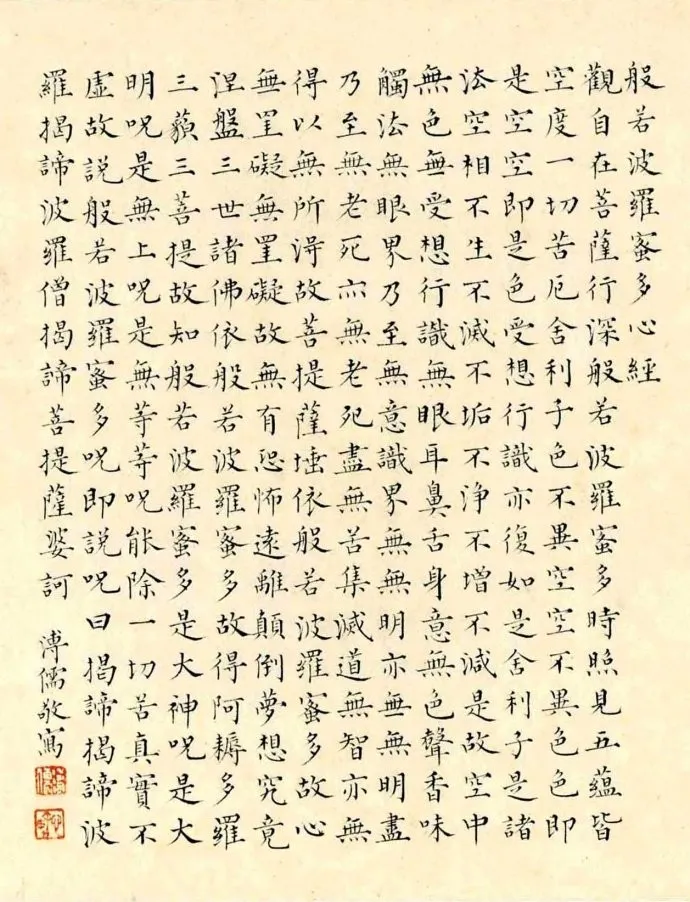 般若波羅蜜多心經
觀自在菩薩行深般若波羅蜜多時照見五蘊皆
空度一切苦厄舍利子色不異空空不異色色即
是空空即是色受想行識亦復如是舍利子是諸
法空相不生不滅不垢不淨不增不減是故空中
無色無受想行識無眼耳鼻舌身意無色聲香味
觸法無眼界乃至無意識界無無明亦無無明盡
乃至無老死亦無老死盡無苦集滅道無智亦無
得以無所得故菩提薩埵依般若波羅蜜多故心
無罣礙無罣礙故無有恐怖遠離顛倒夢想究竟
涅盤三世諸佛依般若波羅蜜多故得阿耨多羅
三藐三菩提故知般若波羅蜜多是大神呪是大
明呪是無上呪是無等等呪能除一切苦真實不
虛故說般若波羅蜜多呪即說呪曰揭諦揭諦波
羅揭諦波羅僧揭諦菩提薩婆訶
溥儒敬寫